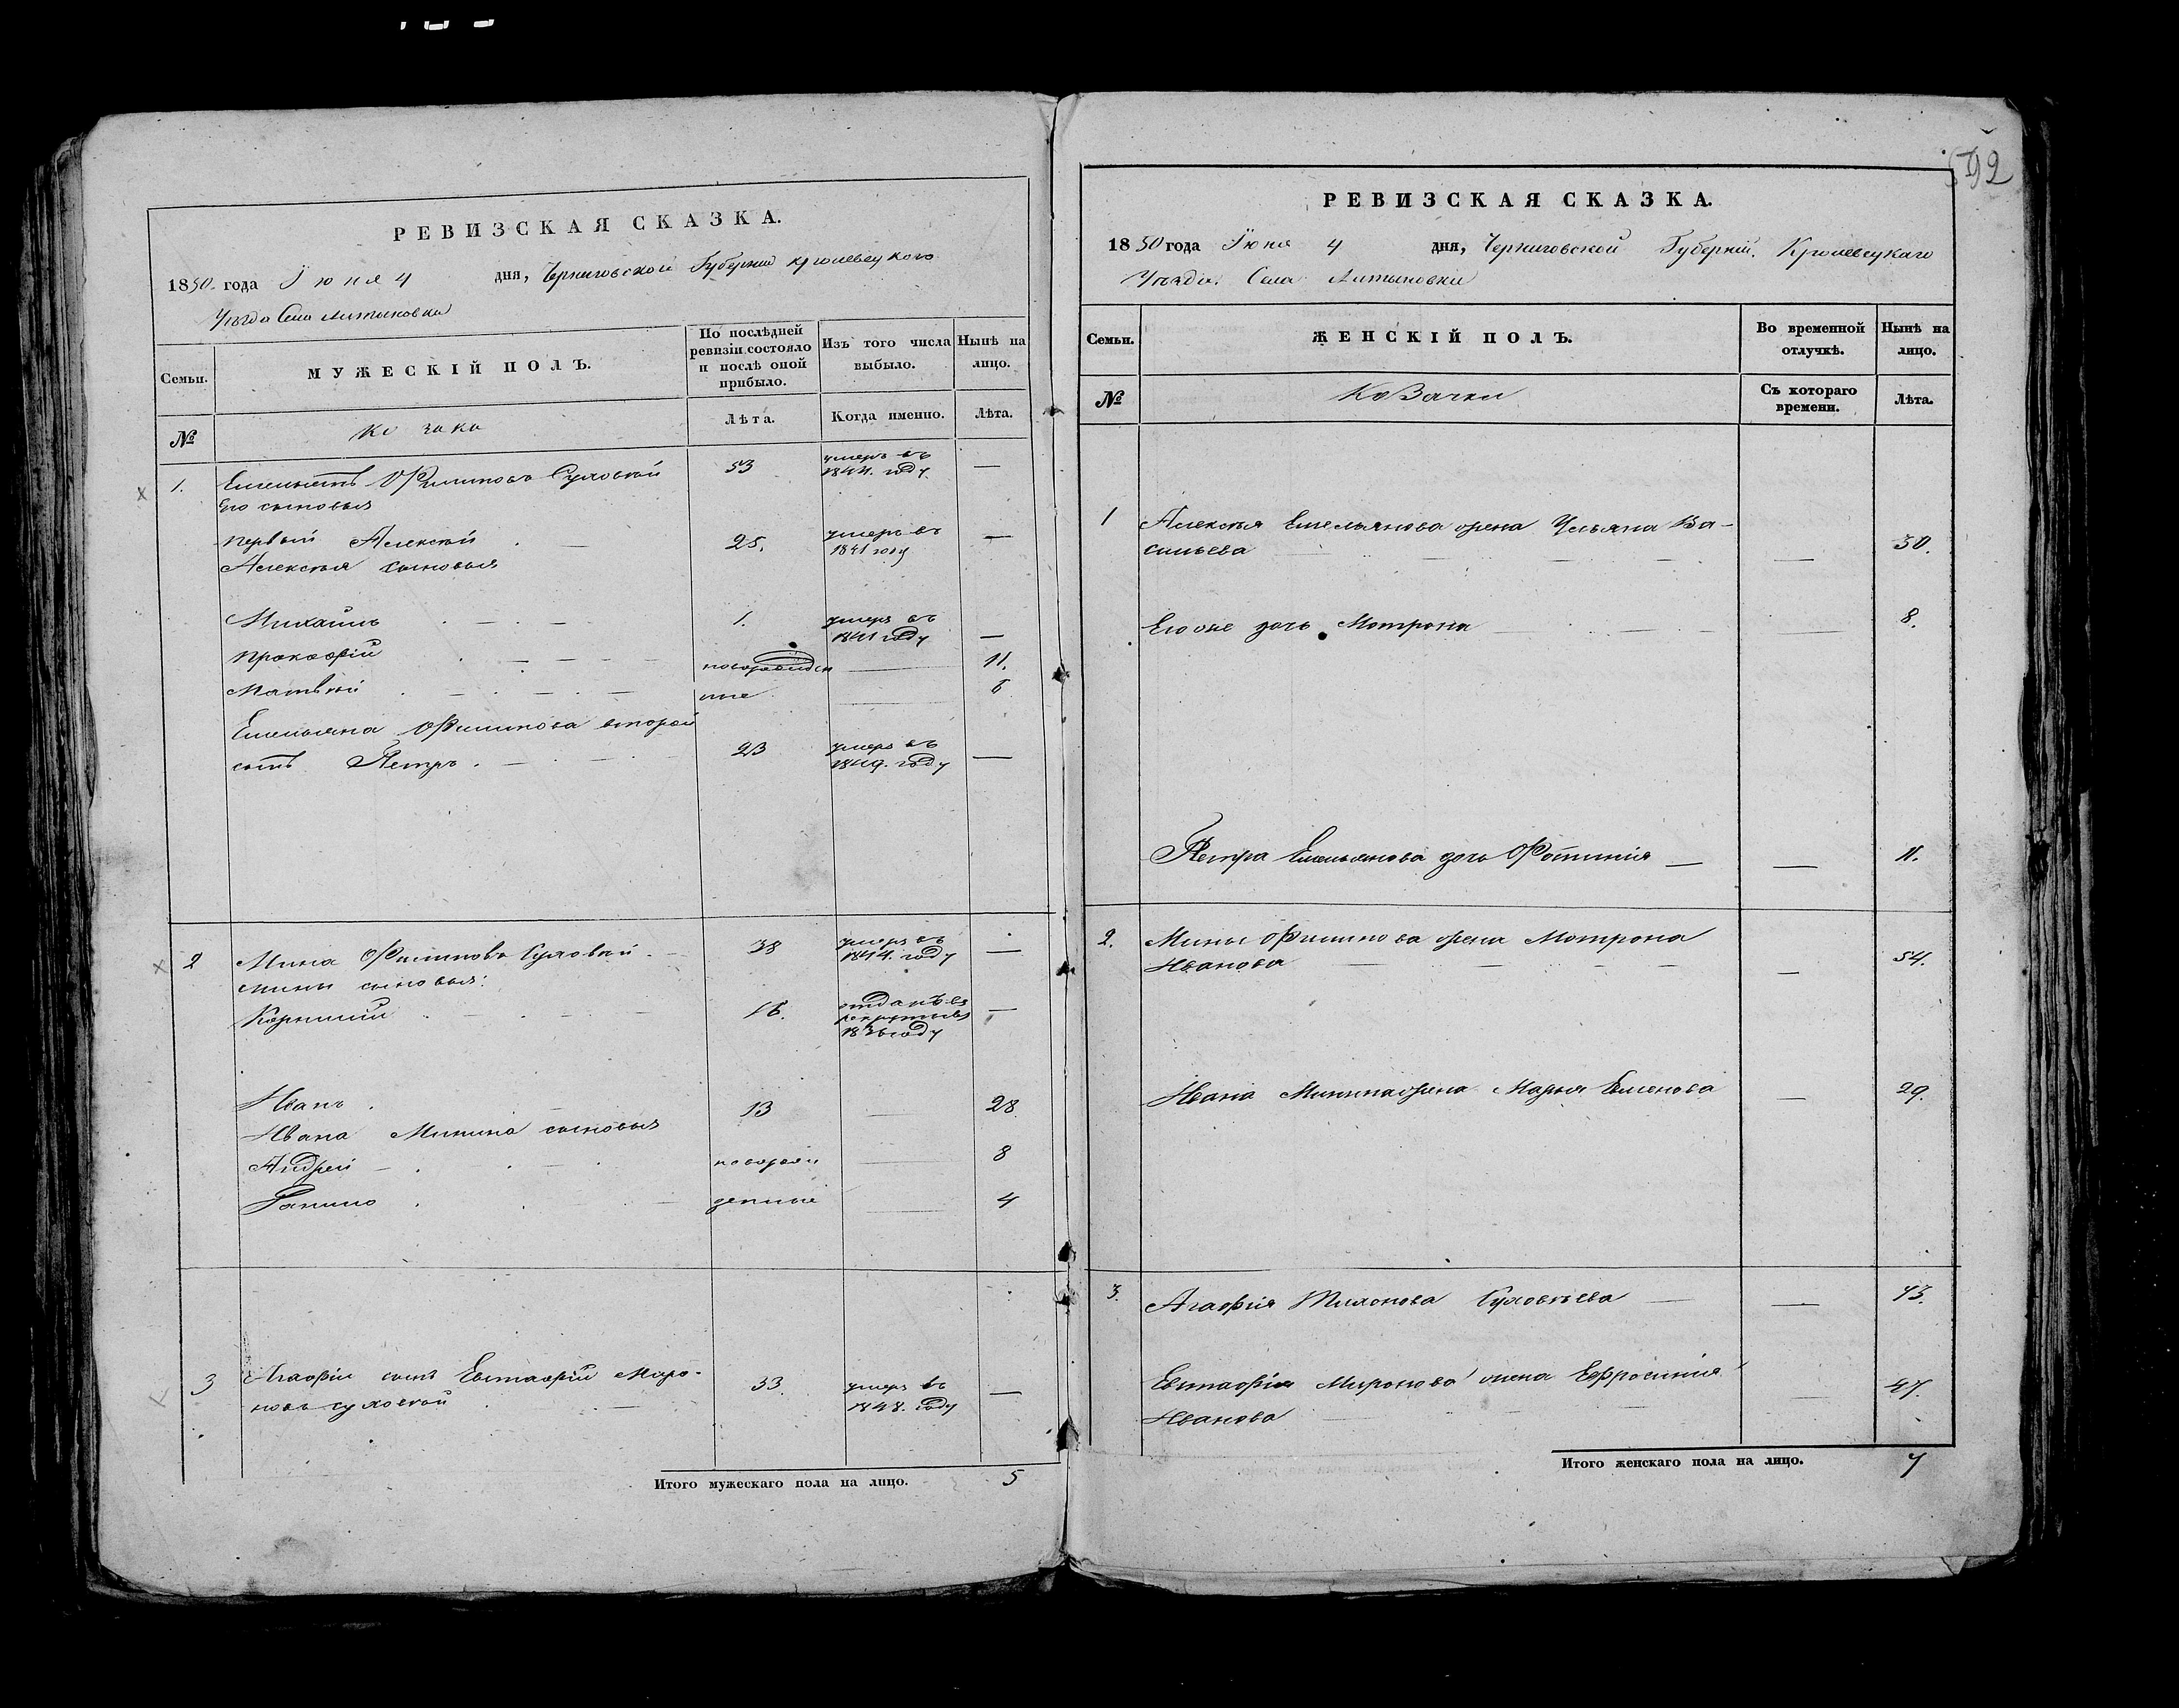 592
РЕВИЗСКАЯ СКАЗКА.
1850 года Іюня 4 дня, Черниговской Губерніи Кролевецкого
Уѣзда Села Литыновки
Семьи.
МУЖЕСКІЙ ПОЛЪ.
По послѣдней ревизіи состояло и послѣ оной прибыло.
Изъ того числа выбыло.
Нынѣ на лицо.
№
Козаки
Лѣта.
Когда именно.
Лѣта.
1. Емельянъ Филиповъ Суховѣй 53 умеръ въ 1844. году —
Его сыновья
первый Алексѣй 25. умеръ въ 1841 году —
Алексѣя сыновья
Михаилъ 1. умеръ въ 1841 году —
Прокофій новорожден 11.
Матвѣй ные 6
Емельяна Филипова второй
сынъ Петръ 23 умеръ въ 1849. году —
2 Мина Филиповъ Суховѣй 38 умеръ въ 1844. году —
Мины сыновья:
Корнилій 16. отданъ въ рекруты въ 1836 году —
Иванъ 13 28
Ивана Минина сыновья
Андрей новорож 8
денные 4
3 Агафіи сынъ Евстафій Миро-
новъ Суховѣй 33 умеръ въ 1848. году —
Итого мужескаго пола на лицо. 5
РЕВИЗСКАЯ СКАЗКА.
1850 года Іюня 4 дня, Черниговской Губерніи. Кролевецкаго
Уѣзда. Села Литыновки
Семьи.
ЖЕНСКІЙ ПОЛЪ.
Во временной отлучкѣ.
Нынѣ на лицо.
№
Козачки
Съ котораго времени.
Лѣта.
1 Алексѣя Емельянова жена Ульяна Ва-
сильева — 30.
Его же дочь Мотрона — 8.
Петра Емельянова дочь Фотинія — 11.
2. Мины Филипова жена Мотрона
Иванова — 54.
Ивана Минина жена Марья Семенова — 29.
3. Агафія Тихонова Суховѣева — 73.
Евстафія Миронова жена Ефросинія
Иванова — 47.
Итого женскаго пола на лицо. 7